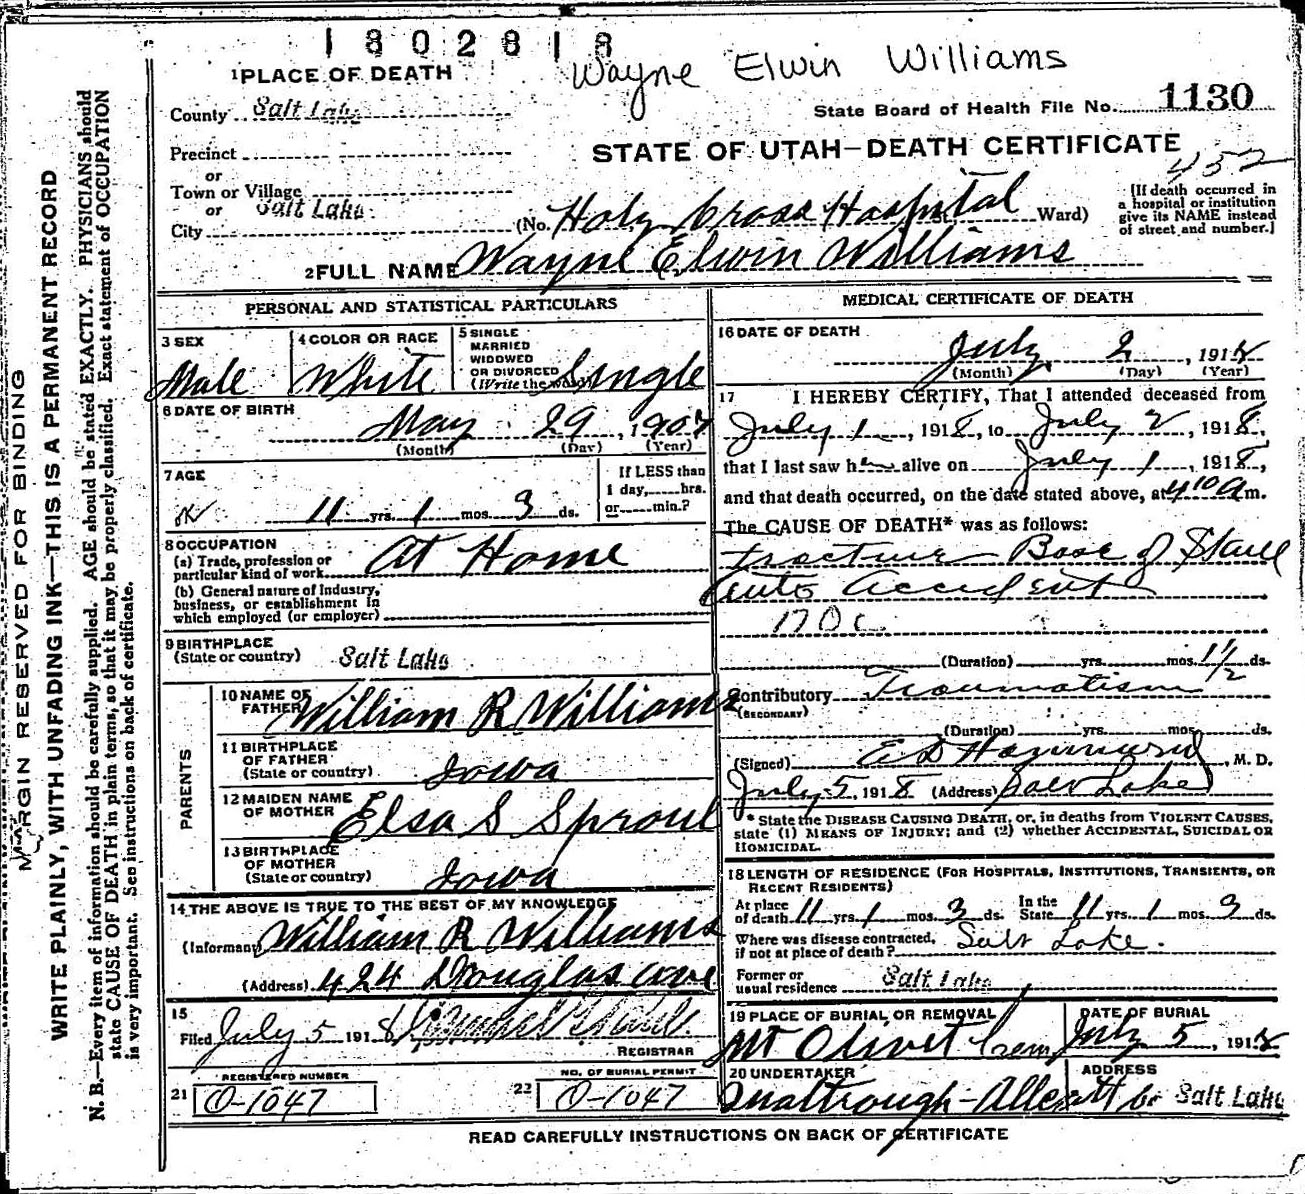 1302818
Wayne Elwin Williams
1 PLACE OF DEATH
State Board of Health File No. 1130
County Salt Lake
STATE OF UTAH—DEATH CERTIFICATE
452
Precinct
or
Town or Village
or Salt Lake
City (No. Holy Cross Hospital Ward)
(If death occurred in
a hospital or institution
give its NAME instead
of street and number.)
2 FULL NAME Wayne Elwin Williams
PERSONAL AND STATISTICAL PARTICULARS
3 SEX
Male
4 COLOR OR RACE
White
5 SINGLE
MARRIED
WIDOWED
OR DIVORCED
(Write the word) Single
6 DATE OF BIRTH
May 29, 1907
(Month) (Day) (Year)
7 AGE
11 yrs. 1 mos. 3 ds.
If LESS than
1 day, hrs.
or min.?
8 OCCUPATION
(a) Trade, profession or
particular kind of work At Home
(b) General nature of Industry,
business, or establishment in
which employed (or employer)
9 BIRTHPLACE
(State or country) Salt Lake
PARENTS
10 NAME OF
FATHER William R Williams
11 BIRTHPLACE
OF FATHER
(State or country) Iowa
12 MAIDEN NAME
OF MOTHER Elsa S Sproul
13 BIRTHPLACE
OF MOTHER
(State or country) Iowa
14 THE ABOVE IS TRUE TO THE BEST OF MY KNOWLEDGE
(Informant) William R Williams
(Address) 424 Douglas ave
15
Filed July 5 1918
REGISTRAR
REGISTERED NUMBER
21 O-1047
NO. OF BURIAL PERMIT
22 O-1047
MEDICAL CERTIFICATE OF DEATH
16 DATE OF DEATH
July 2, 1918
(Month) (Day) (Year)
17 I HEREBY CERTIFY, That I attended deceased from
July 1, 1918, to July 2, 1918,
that I last saw him alive on July 1, 1918,
and that death occurred, on the date stated above, at 4 10 A m.
The CAUSE OF DEATH* was as follows:
Fracture Base of Skull
auto accident
170c
(Duration) yrs. mos. 1 1/2 ds.
Contributory Traumatism
(SECONDARY)
(Duration) yrs. mos. ds.
(Signed) E D Hammond, M. D.
July 5, 1918 (Address) Salt Lake
* State the DISEASE CAUSING DEATH, or, in deaths from VIOLENT CAUSES,
state (1) MEANS OF INJURY; and (2) whether ACCIDENTAL, SUICIDAL OR
HOMICIDAL.
18 LENGTH OF RESIDENCE (FOR HOSPITALS, INSTITUTIONS, TRANSIENTS, OR
RECENT RESIDENTS)
At place
of death 11 yrs. 1 mos. 3 ds.
In the
State 11 yrs. 1 mos. 3 ds.
Where was disease contracted,
if not at place of death? Salt Lake.
Former or
usual residence Salt Lake
19 PLACE OF BURIAL OR REMOVAL
Mt Olivet Cem
DATE OF BURIAL
July 5, 1918
20 UNDERTAKER
ADDRESS
Salt Lake
READ CAREFULLY INSTRUCTIONS ON BACK OF CERTIFICATE
MARGIN RESERVED FOR BINDING
WRITE PLAINLY, WITH UNFADING INK—THIS IS A PERMANENT RECORD
N. B.—Every item of information should be carefully supplied. AGE should be stated EXACTLY. PHYSICIANS should
state CAUSE OF DEATH in plain terms, so that it may be properly classified. Exact statement of OCCUPATION
is very important. See instructions on back of certificate.